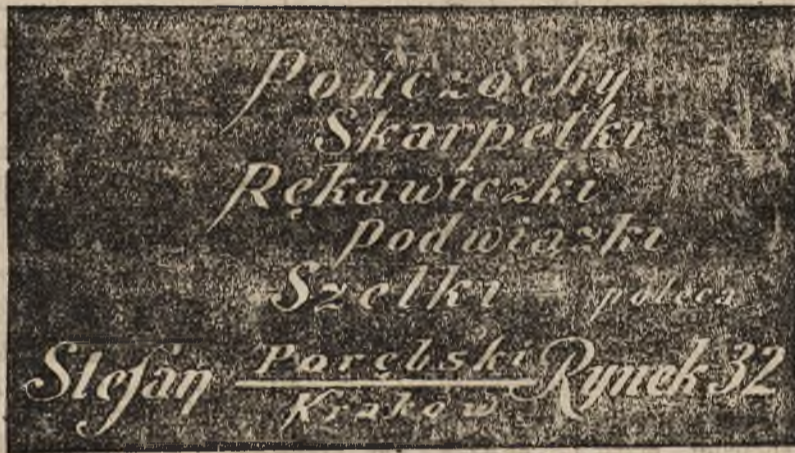 Pończochy
Skarpetki
Rękawiczki
Podwiązki
Szelki poleca
Stefan Porębski Rynek 32
Kraków